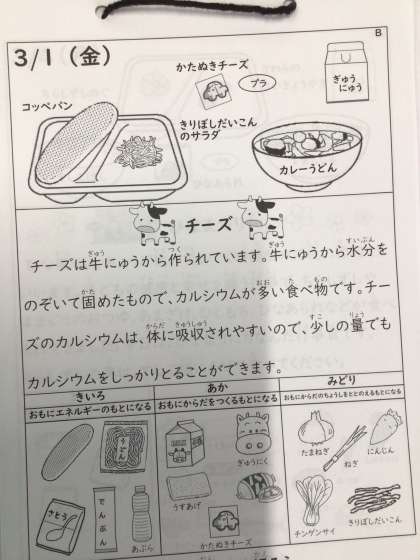 B
3/1（金）
かたぬきチーズ
プラ
ぎゅう
にゅう
コッペパン
きりぼしだいこん
のサラダ
カレーうどん
チーズ
チーズは牛にゅうから作られています。牛にゅうから水分を
のぞいて固めたもので、カルシウムが多い食べ物です。チー
ズのカルシウムは、体に吸収されやすいので、少しの量でも
カルシウムをしっかりとることができます。
きいろ
おもにエネルギーのもとになる
あか
おもにからだをつくるもとになる
みどり
おもにからだのちょうしをととのえるもとになる
うどん
さとう
でんぷん
あぶら
ぎゅうにく
うすあげ
かたぬきチーズ
たまねぎ
ねぎ
にんじん
チンゲンサイ
きりぼしだいこん